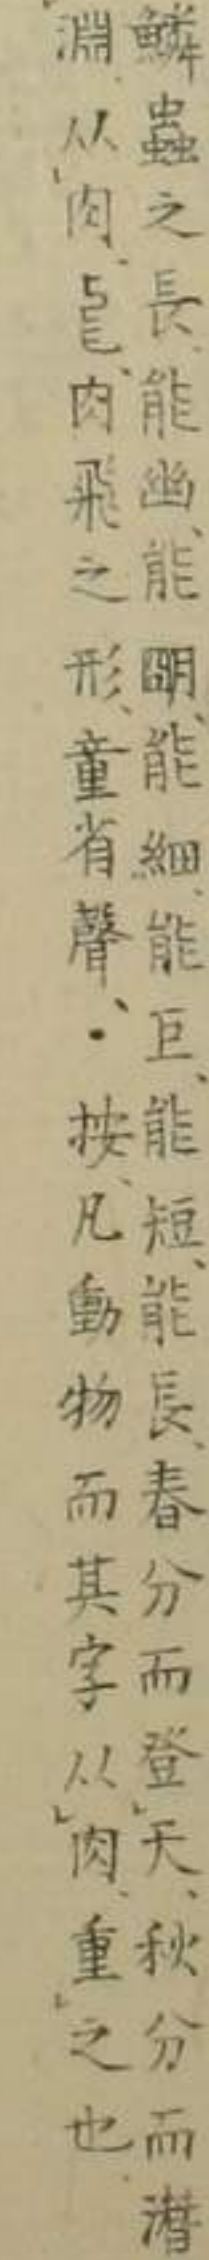 鱗蟲之長、能幽、能朙、能細、能巨、能短、能長、春分而登レ天、秋分而潛
淵、从レ肉、㠯、肉飛之形、童省聲、・按、凡動物而其字从レ肉、重レ之也